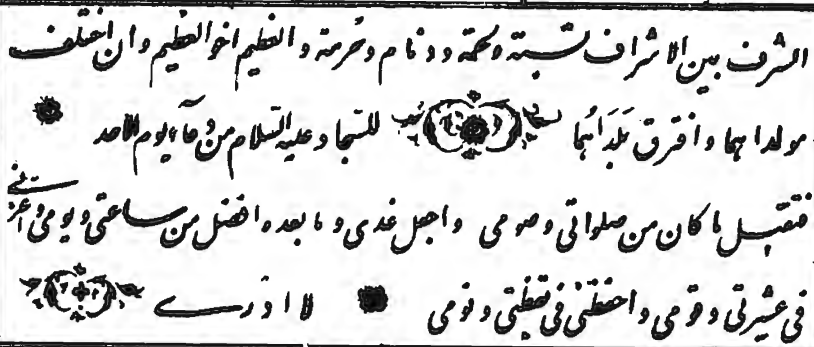 الشرف بين الاشراف نسبة ولحمة وذمام وحرمة والعظيم اخو العظيم وان اختلف
مولداهما وافترق بلداهما للسجاد عليه السلام من دعاء يوم الاحد
فتقبل ما كان من صلواتى وصومى واجعل غدى وما بعده افضل من ساعتى ويومى واعزنى
فى عشيرتى وقومى واحفظنى فى يقظتى ونومى لا ادرى